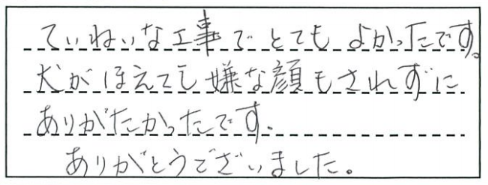 ていねいな工事でとてもよかったです。
犬がほえても嫌な顔もされずに
ありがたかったです。
ありがとうございました。